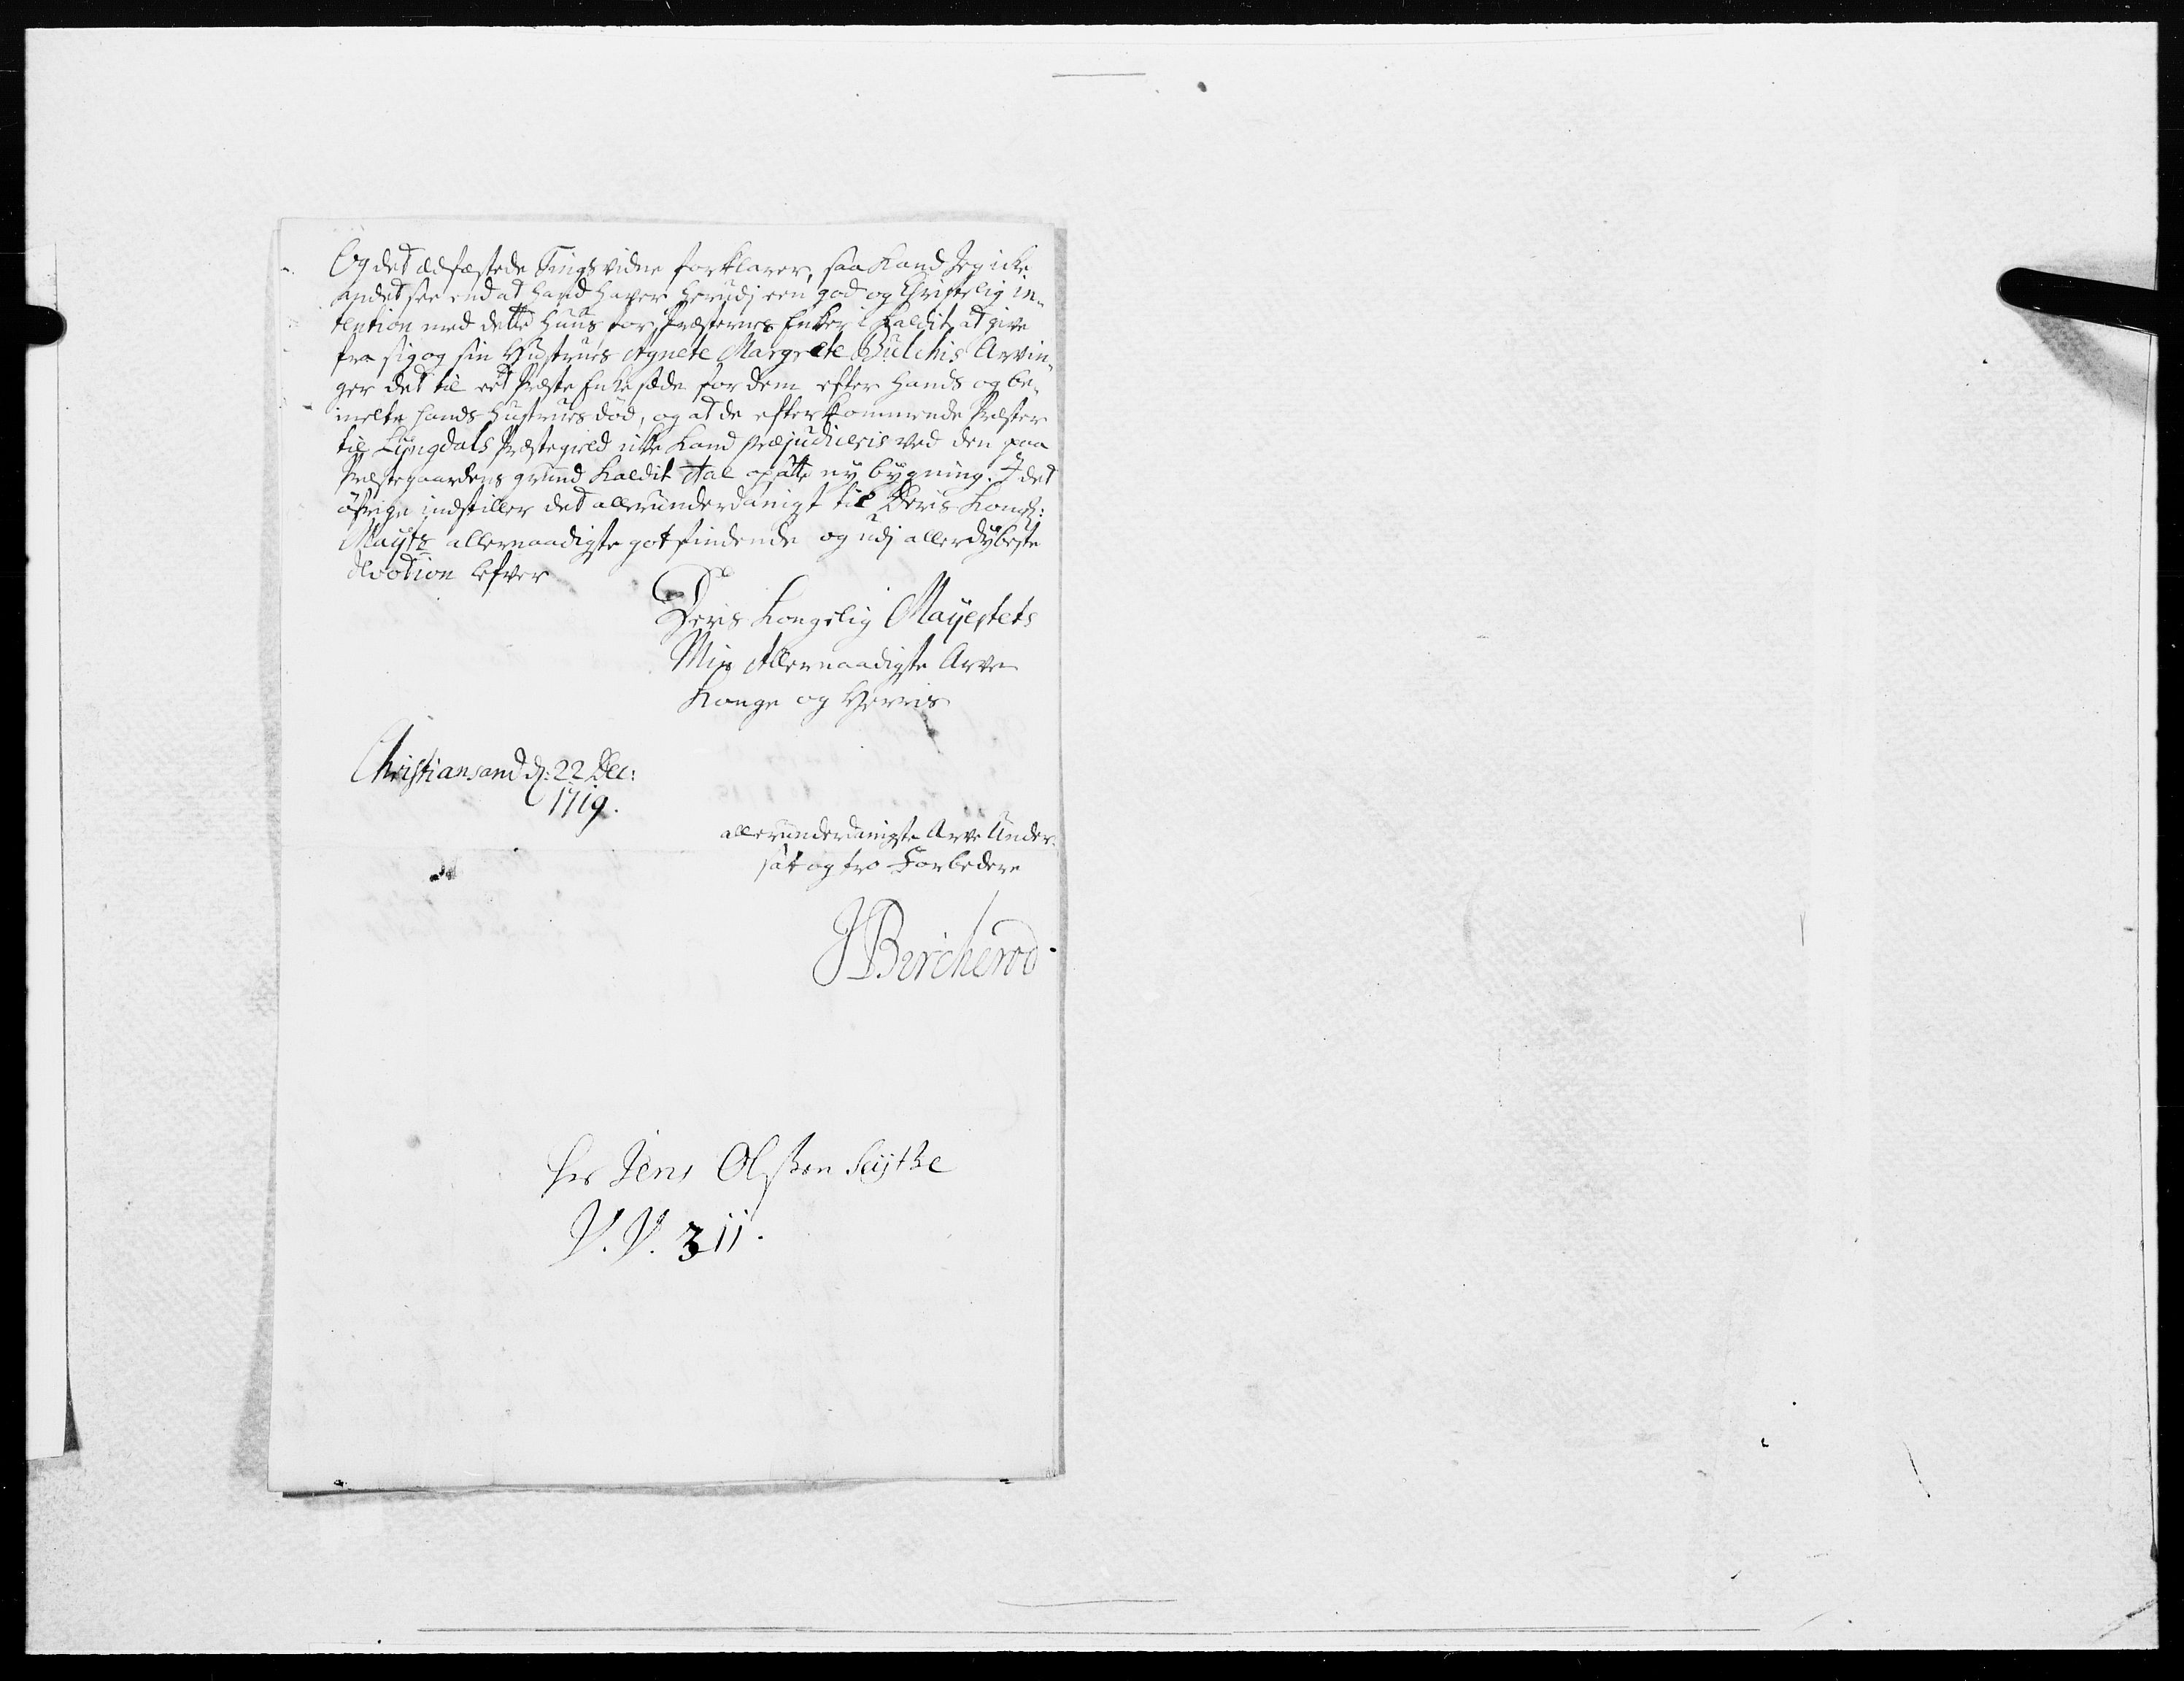 Og det ædfæstede Tings vidne forklarer, saa kand Jeg icke
andet see end at hand haver herudj een god og Christelig in-
tention med dette Huus for Præsternes Enker i Kaldit at give
fra sig og sin Hustrues Agnete Margrete Bulchis Arvin-
ger det til eet Præste Enke sæde for dem efter hands og be-
melte hands hustrues død, og at de efterkommende Præster
til Lyngdals Præstegield icke kand præjudiceris ved den paa
Præstegaardens grund kaldit Aal opsatte ny bygning. I det
øfrige indstiller det allerunderdanigst til Deris Kongl:
Mayts allernaadigste gotfindende og udj allerdybeste
devotion lefver
Deris Kongelig Mayestets
Min Allernaadigste Arve
Konge og Herris
Christiansand d: 22 Dec:
1719.
allerunderdanigste Arve Under-
sat og tro Forbedere
JBircherod
Her Jens Olssen Seythe
V. V. 311.